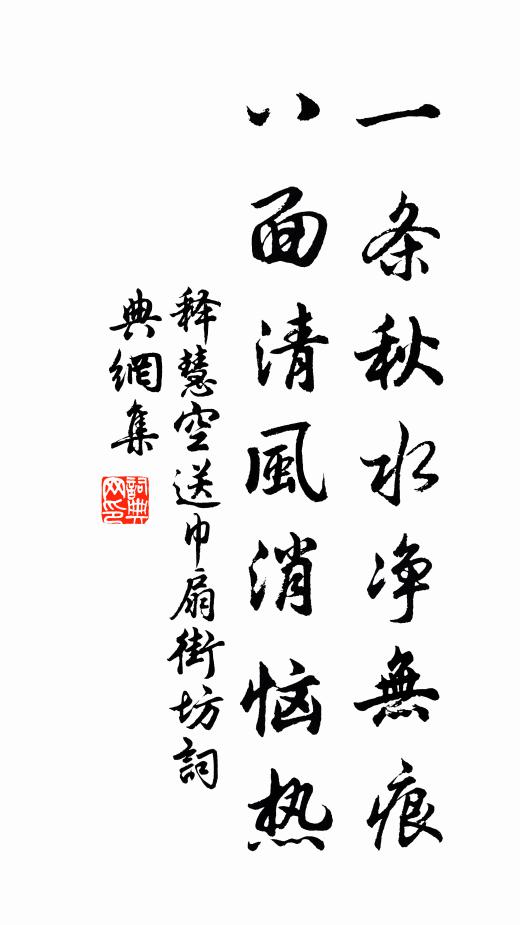 一条秋水净無痕
八面清風消恼热
释慧空送巾扇街坊詞
典網集
詞典网印